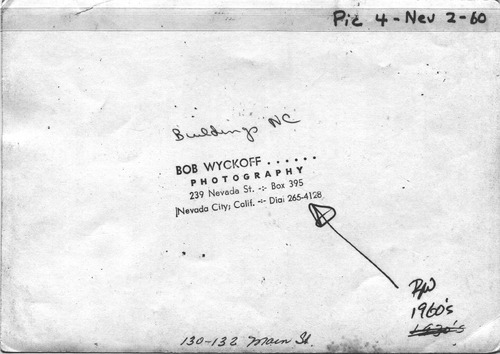 Pic 4 - Nev 2-60
Buildings NC
BOB WYCKOFF . . . . . .
PHOTOGRAPHY
239 Nevada St. -:- Box 395
Nevada City, Calif. -:- Dial 265-4128
BW
1960's
1920's
130-132 Main St.